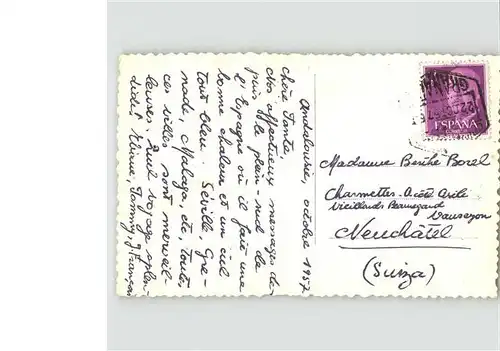 Andalousie, octobre 1957
Chère Tante,
des affectueux messages de-
puis le plein-sud de
l'Espagne où il fait une
bonne chaleur et un ciel
tout bleu. Séville, Gre-
nade, Malaga, etc, toutes
ces villes sont merveil-
leuses. Quel voyage splen-
dide! Eliane, Tommy, Jf
François
ESPAÑA
GRANA
Madame Berthe Borel
Charmettes. Asile
Vieillards Beauregard
Vauseyon
Neuchâtel
(Suiza)